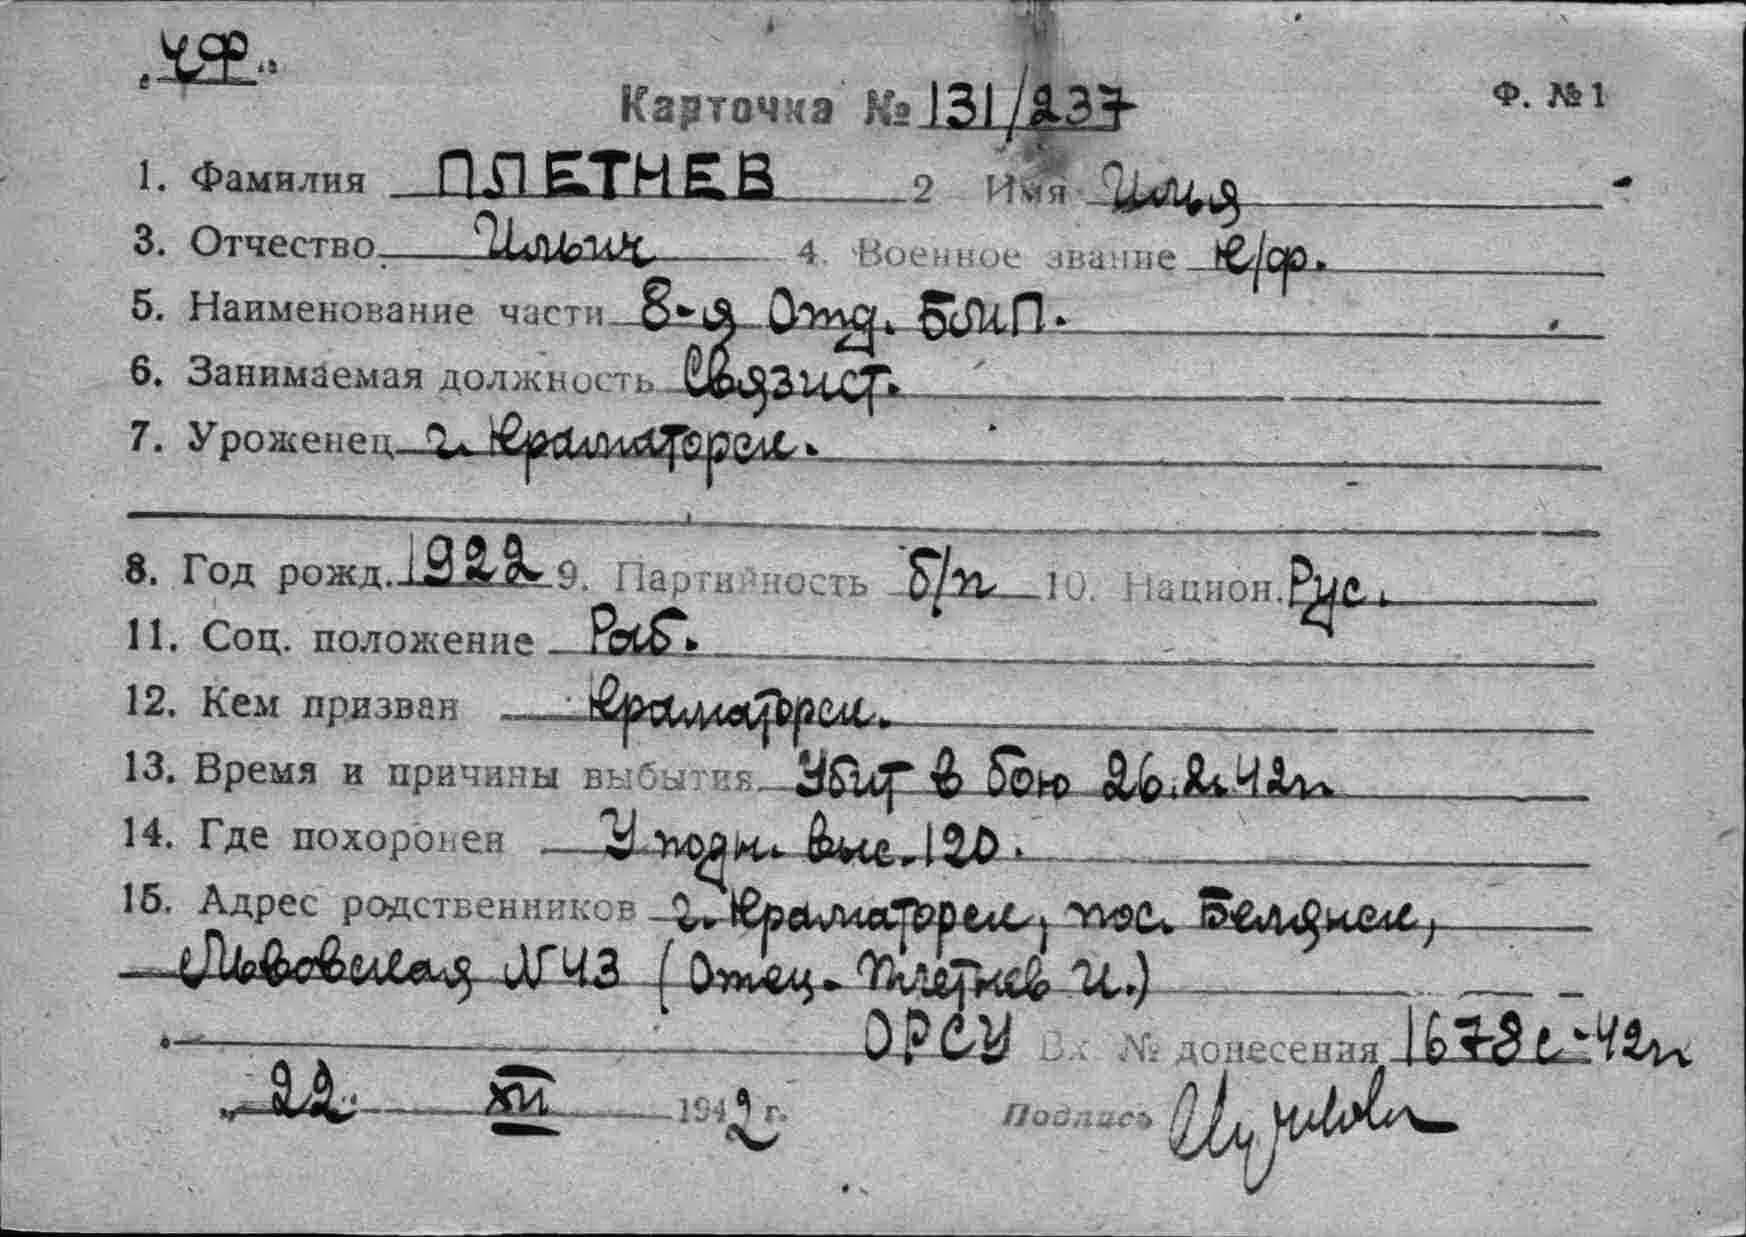 „ЧФ"
Карточка № 131/237 Ф. № 1
1. Фамилия ПЛЕТНЕВ 2 Имя Илья
3. Отчество Ильич 4. Военное звание к/ф.
5. Наименование части 8-я Отд. БМП.
6. Занимаемая должность Связист.
7. Уроженец г. Краматорск.
8. Год рожд. 1922 9. Партийность б/п 10. Национ. Рус.
11. Соц. положение Раб.
12. Кем призван Краматорск.
13. Время и причины выбытия Убит в бою 26.2.42г.
14. Где похоронен У подн. выс. 120.
15. Адрес родственников г. Краматорск, пос. Белянск,
Львовская N 43 (Отец - Плетнев И.)
ОРСУ Вх № донесения 1678с-42г.
„22" XII 1942 г. Подпись